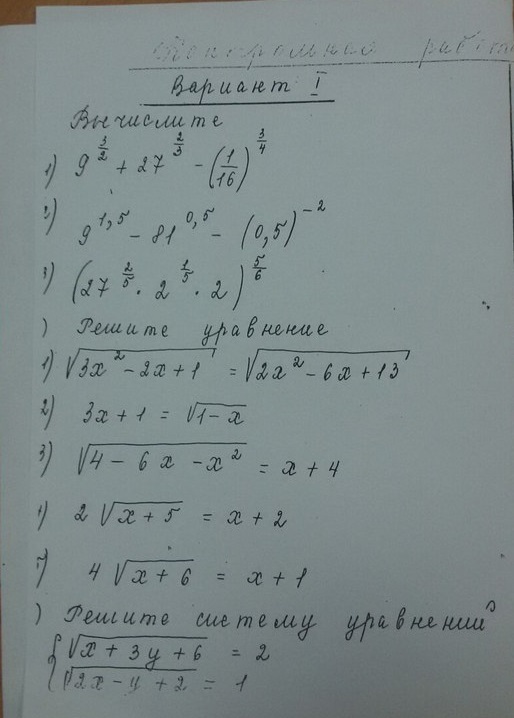 Контрольная работа
Вариант I
Вычислите
1) 9^{3/2} + 27^{2/3} - (1/16)^{3/4}
2) 9^{1,5} - 81^{0,5} - (0,5)^{-2}
3) (27^{2/5} · 2^{1/5} · 2)^{5/6}
) Решите уравнение
1) √(3x² - 2x + 1) = √(2x² - 6x + 13)
2) 3x + 1 = √(1 - x)
3) √(4 - 6x - x²) = x + 4
4) 2√(x + 5) = x + 2
5) 4√(x + 6) = x + 1
) Решите систему уравнений
{ √(x + 3y + 6) = 2
√(2x - y + 2) = 1